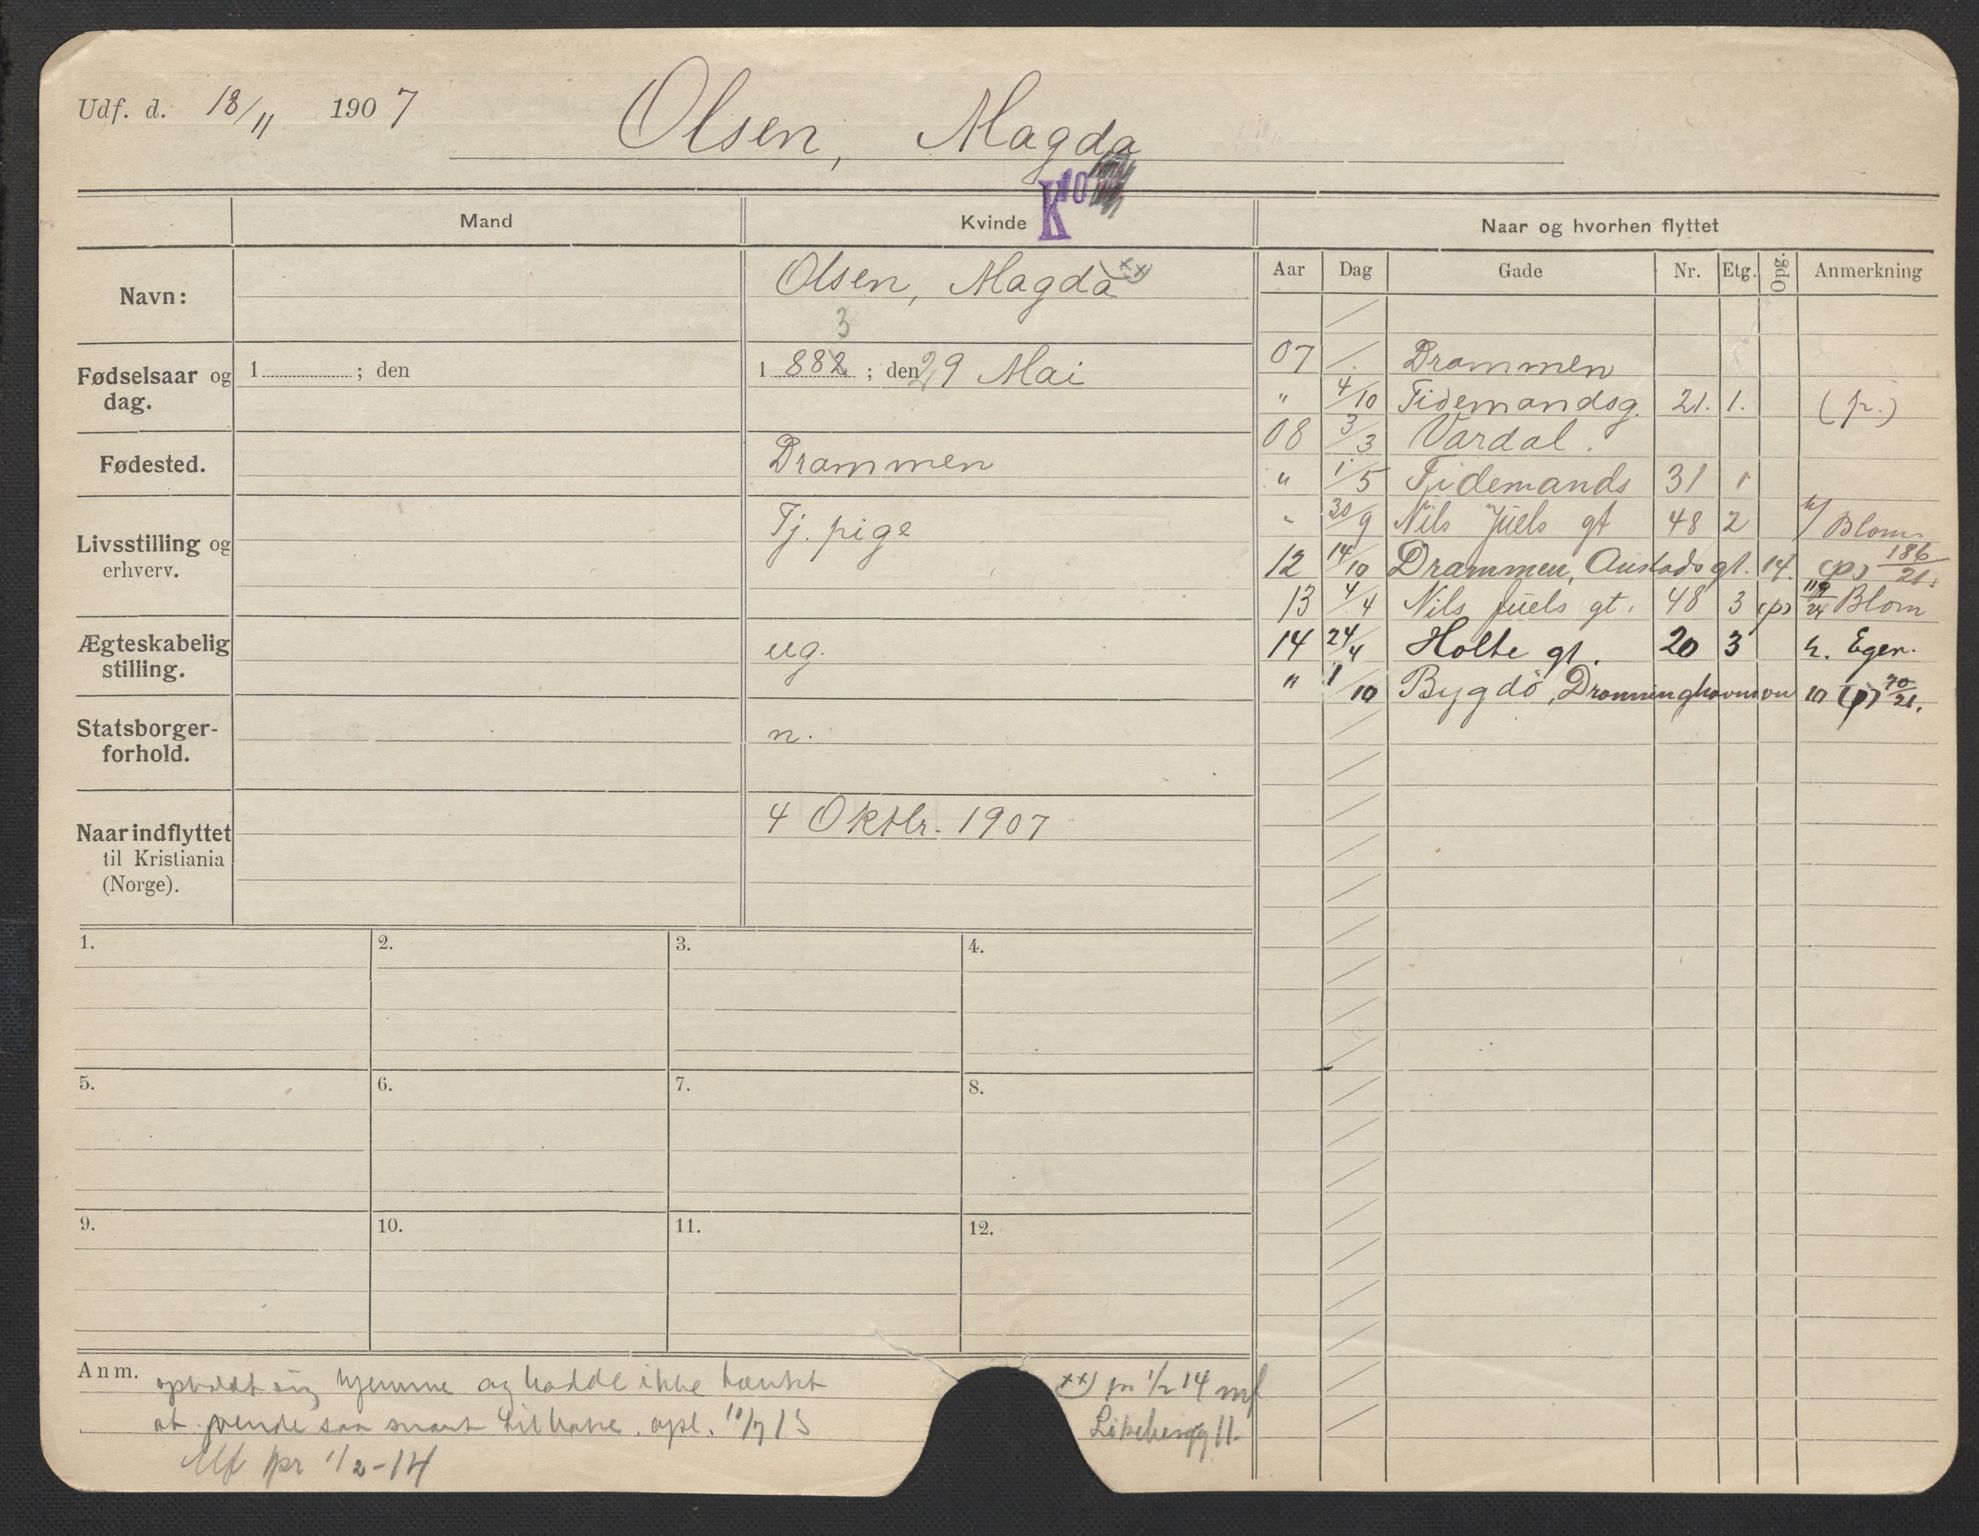 Udf. d. 18/11 1907 Olsen, Magda
K
Mand Kvinde Naar og hvorhen flyttet
Aar Dag Gade Nr. Etg. Opg. Anmerkning
Navn: Olsen, Magda xx)
3
Fødselsaar og dag. 1 ; den 1 882 ; den 29 Mai
Fødested. Drammen
Livsstilling og erhverv. Tj. pige
Ægteskabelig stilling. ug.
Statsborger-forhold. n.
Naar indflyttet til Kristiania (Norge). 4 Oktbr. 1907
07 / Drammen
" 4/10 Tidemandsg. 21. 1. (p.)
08 3/3 Vardal.
" 1/5 Tidemands 31 1
" 30/9 Nils Juels gt 48 2 h/ Blom
12 14/10 Drammen, Austads gt. 14. (p) 186/21.
13 4/4 Nils Juels gt. 48 3 (p) Blom
14 24/4 Holte gt. 20 3 h. Eger.
" 1/10 Bygdö, Dronninghavnvn 10 (p) 70/21.
1. 2. 3. 4.
5. 6. 7. 8.
9. 10. 11. 12.
Anm. opholdt sig hjemme og hadde ikke tænkt
at vende saa snart tilbake. opl. 10/7 13
Mf pr 1/2-14
xx) pr 1/2 14 mf
Lökebergg 11.